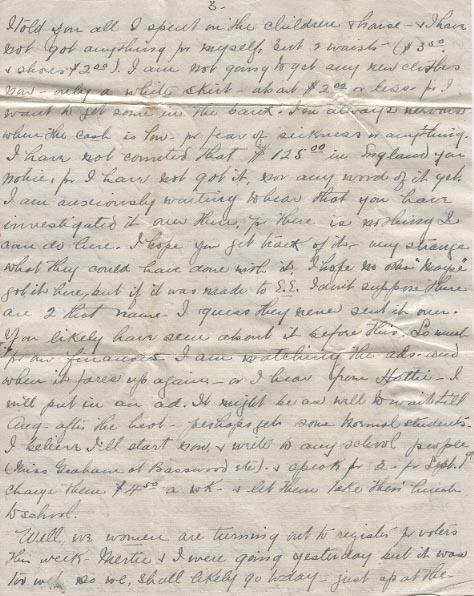 3.
I told you all I spent on the children & house - & I have
not got anything for myself, but 2 waists ($3.00
& shoes $2.00). I am not going to get any new clothes
now - only a white skirt - about $2.00 or less for I
want to get some in the bank. I'm always nervous
when the cash is low - for fear of sickness or anything.
I have not counted that $125.00 in England you
notice, for I have not got it, nor any word of it yet.
I am anxiously waiting to hear that you have
investigated it over there, for there is nothing I
can do here. I hope you get track of it - very strange
what they could have done with it. I hope no other "Mayse"
got it here, but if it was made to E.E. I don't suppose there
are 2 that name - I guess they never sent it over.
You likely have seen about it before this. So much
for our finances - I am watching the ads - and
when it fares up again - or I hear from Hattie - I
will put in an ad. It might be as well to wait till
Aug - after the heat - perhaps get some Normal students.
I believe I'll start now & write to any school people
(Miss Graham at Basswood etc) - & speak for 2 - for Sept. 1st
charge them $4.50 a wk - & let them take their lunch
to school.
Well, we women are turning out to register for voters
this week - Mertie & I were going yesterday but it was
too wet so we shall likely go today - just up at the